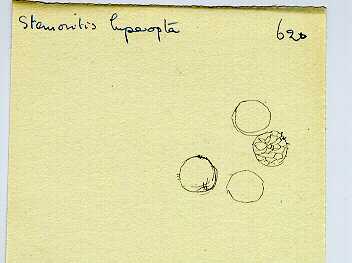 Stemonitis hyperopta 620